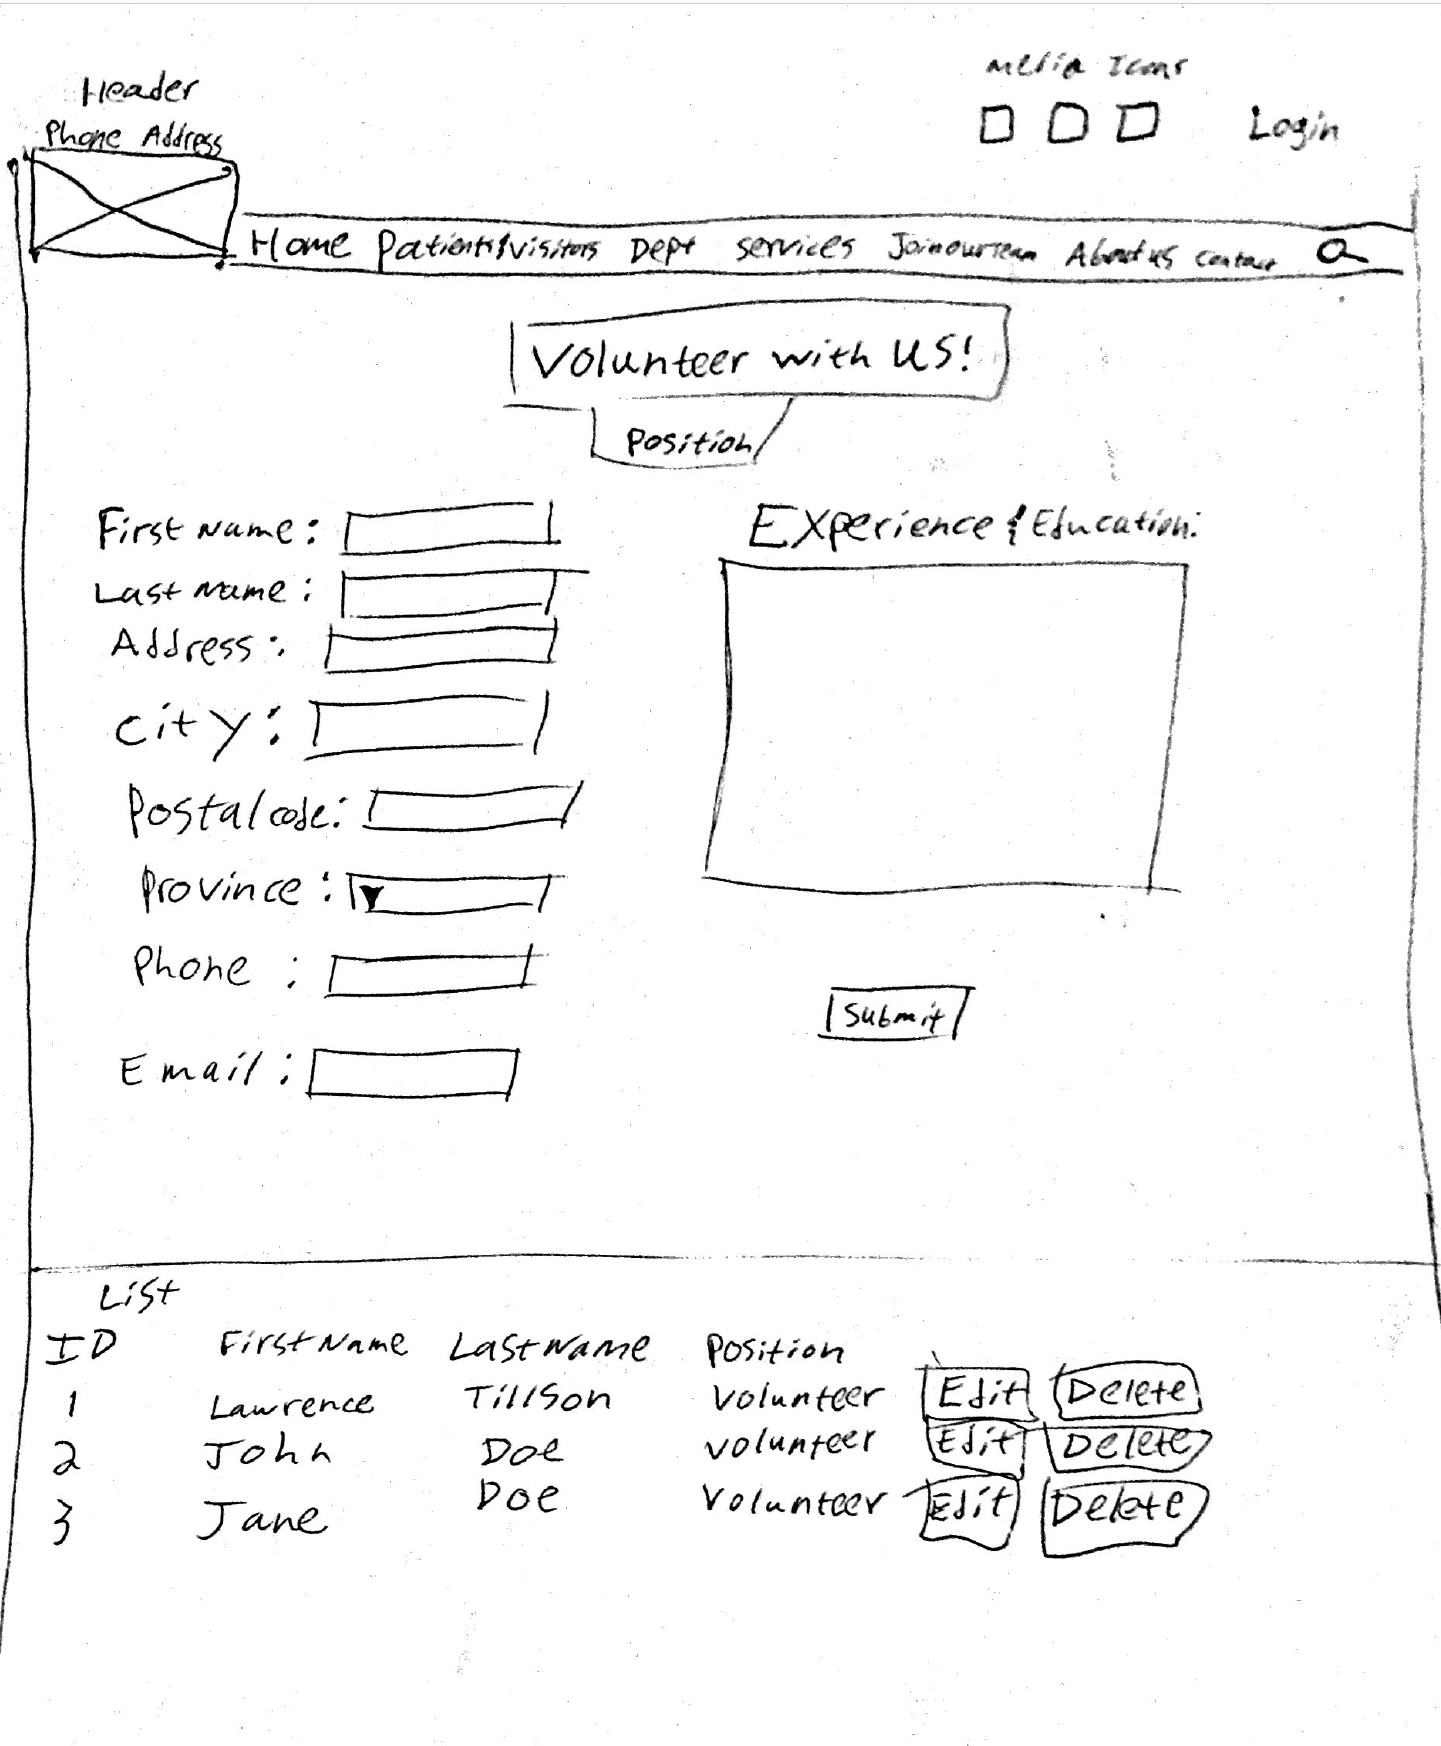 Header
Phone Address
Media Icons
Login
Home Patients/Visitors Dept Services Joinourteam About us Contact
Volunteer with US!
Position
First Name:
Last Name:
Address:
City:
Postal code:
Province:
Phone :
Email:
Experience & Education:
Submit
List
ID First Name Last Name Position
1 Lawrence Tillson Volunteer Edit Delete
2 John Doe Volunteer Edit Delete
3 Jane Doe Volunteer Edit Delete